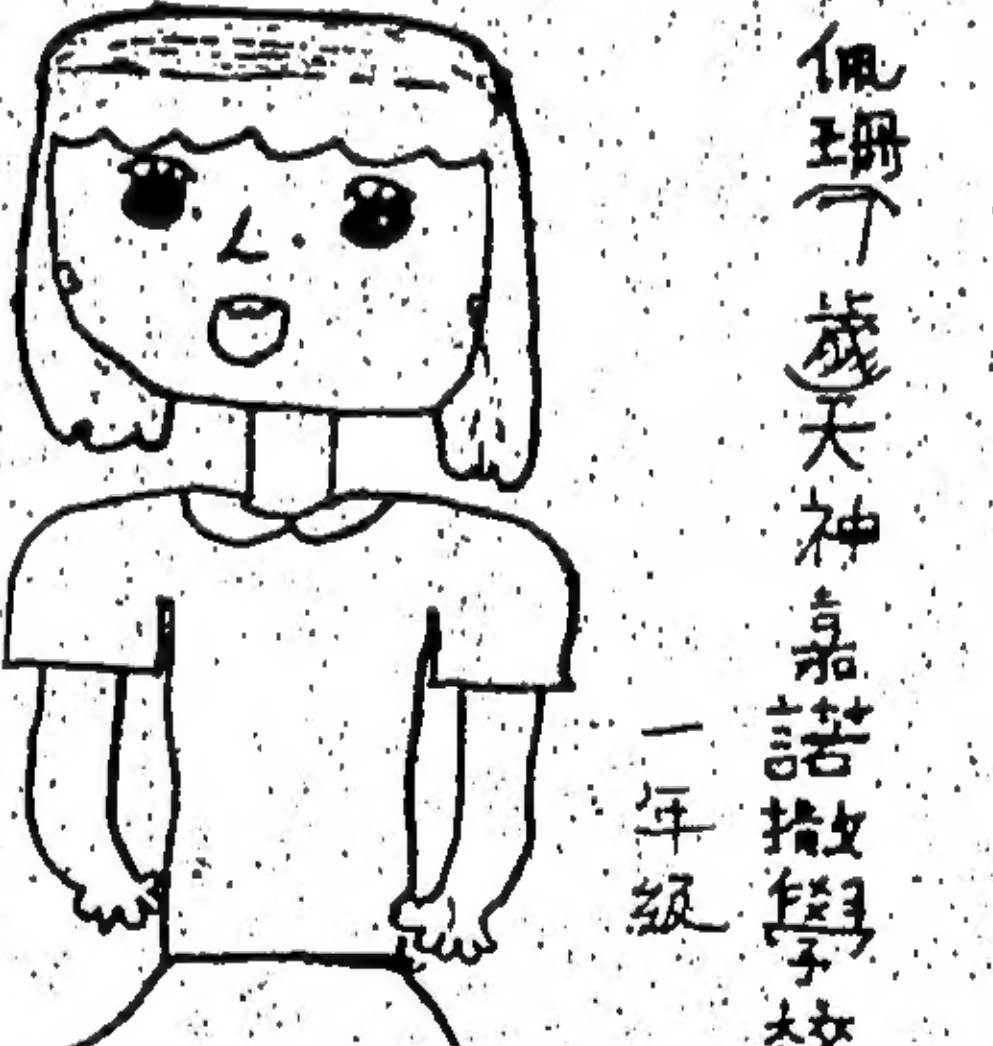 佩珊(7歲)天神嘉諾撒學校
一年級